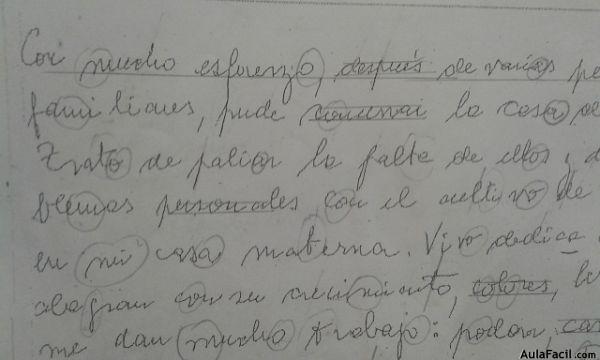 Con mucho esfuerzo, después de varias pe
familiares, pude conservar la casa de
Trato de paliar la falta de ellos, d
blemas personales, con el cultivo de
en mi casa materna. Vivo dedica
alegran con su crecimiento, colores, b
me dan mucho trabajo: podar, cas
AulaFacil.com